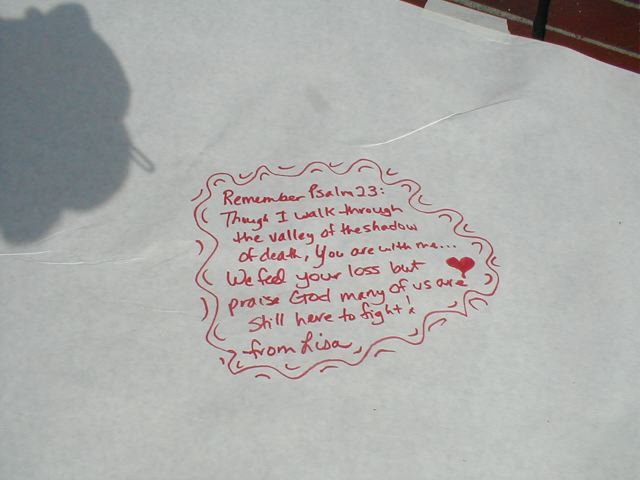 Remember Psalm 23:
Though I walk through
the valley of the shadow
of death, You are with me...
We feel your loss but
praise God many of us are
still here to fight!
from Lisa